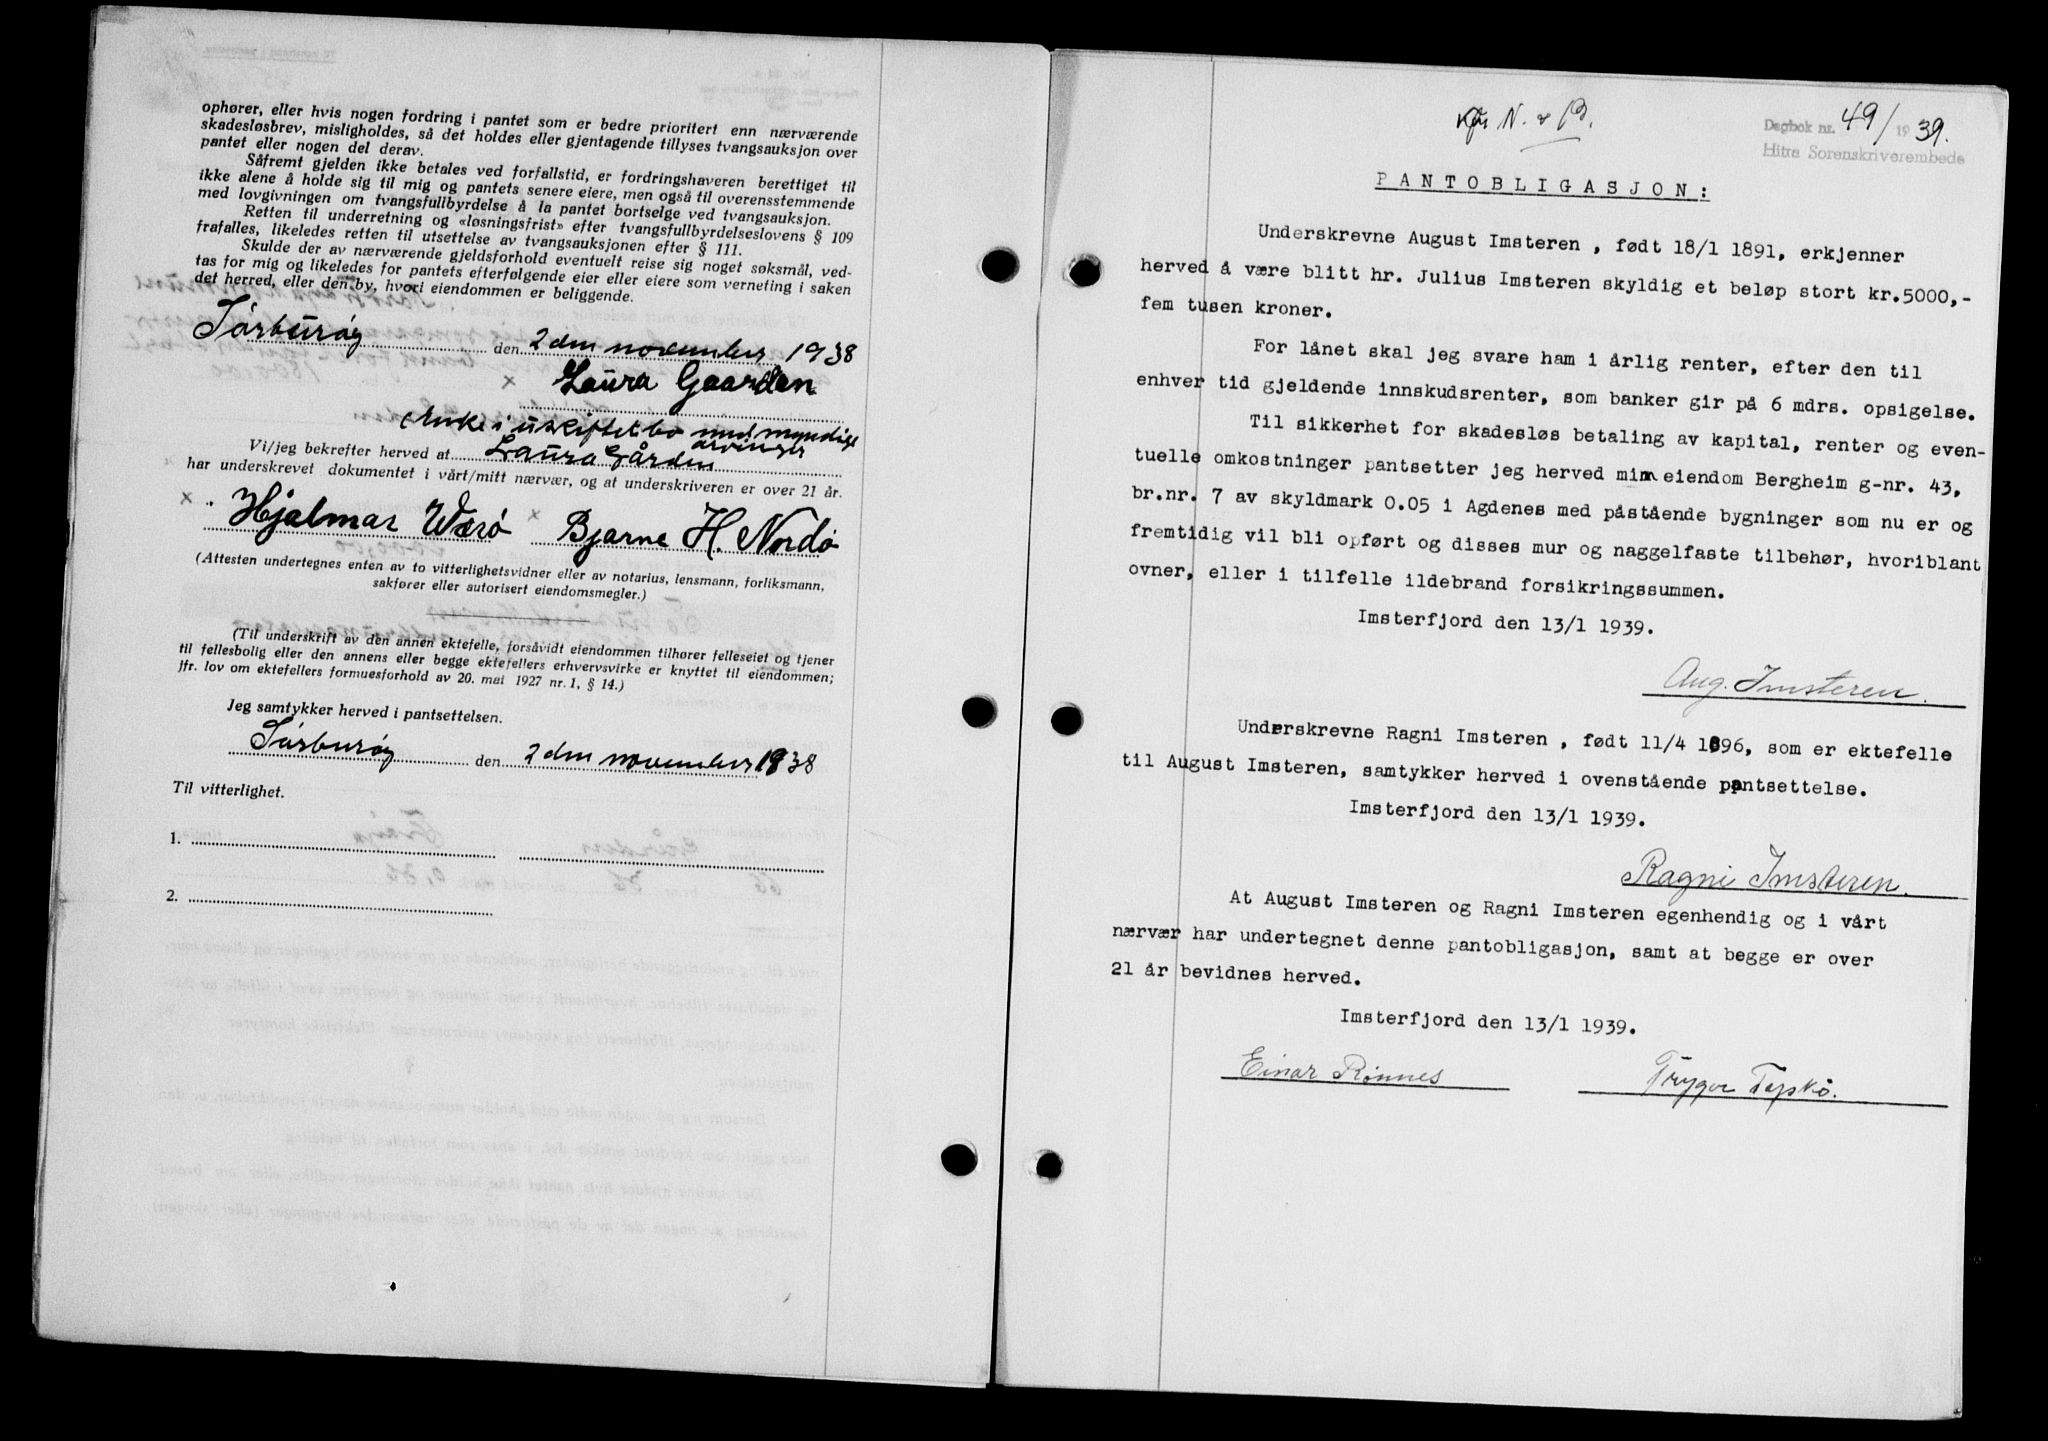 ophører, eller hvis nogen fordring i pantet som er bedre prioritert enn nærværende
skadesløsbrev, misligholdes, så det holdes eller gjentagende tillyses tvangsauksjon over
pantet eller nogen del derav.
Såfremt gjelden ikke betales ved forfallstid, er fordringshaveren berettiget til
ikke alene å holde sig til mig og pantets senere eiere, men også til overensstemmende
med lovgivningen om tvangsfullbyrdelse å la pantet bortselge ved tvangsauksjon.
Retten til underretning og «løsningsfrist» efter tvangsfullbyrdelseslovens § 109
frafalles, likeledes retten til utsettelse av tvangsauksjonen efter § 111.
Skulde der av nærværende gjeldsforhold eventuelt reise sig noget søksmål, ved-
tas for mig og likeledes for pantets efterfølgende eier eller eiere som verneting i saken
det herred, eller den by, hvori eiendommen er beliggende.
Sørburøy den 2 den november 1938
x Laura Gaarden
Enke i uskiftet bo med myndige
arvinger
Vi/jeg bekrefter herved at Laura Gården
har underskrevet dokumentet i vårt/mitt nærvær, og at underskriveren er over 21 år.
x Hjalmar Værø x Bjarne H. Nordø
(Attesten undertegnes enten av to vitterlighetsvidner eller av notarius, lensmann, forliksmann,
sakfører eller autorisert eiendomsmegler.)
(Til underskrift av den annen ektefelle, forsåvidt eiendommen tilhører felleseiet og tjener
til fellesbolig eller den annens eller begge ektefellers erhvervsvirke er knyttet til eiendommen;
jfr. lov om ektefellers formuesforhold av 20. mai 1927 nr. 1, § 14.)
Jeg samtykker herved i pantsettelsen.
Sørburøy den 2 den november 1938
Til vitterlighet.
1.
2.
N. & B.
Dagbok nr. 49/1939.
Hitra Sorenskriverembede
PANTOBLIGASJON:
Underskrevne August Imsteren , født 18/1 1891, erkjenner
herved å være blitt hr. Julius Imsteren skyldig et beløp stort kr.5000,-
fem tusen kroner.
For lånet skal jeg svare ham i årlig renter, efter den til
enhver tid gjeldende innskudsrenter, som banker gir på 6 mdrs. opsigelse.
Til sikkerhet for skadesløs betaling av kapital, renter og even-
tuelle omkostninger pantsetter jeg herved min eiendom Bergheim g-nr. 43,
br.nr. 7 av skyldmark 0.05 i Agdenes med påstående bygninger som nu er og
fremtidig vil bli opført og disses mur og naggelfaste tilbehør, hvoriblant
ovner, eller i tilfelle ildebrand forsikringssummen.
Imsterfjord den 13/1 1939.
Aug. Imsteren.
Underskrevne Ragni Imsteren , født 11/4 1896, som er ektefelle
til August Imsteren, samtykker herved i ovenstående pantsettelse.
Imsterfjord den 13/1 1939.
Ragni Imsteren.
At August Imsteren og Ragni Imsteren egenhendig og i vårt
nærvær har undertegnet denne pantobligasjon, samt at begge er over
21 år bevidnes herved.
Imsterfjord den 13/1 1939.
Einar Rønnes Trygve